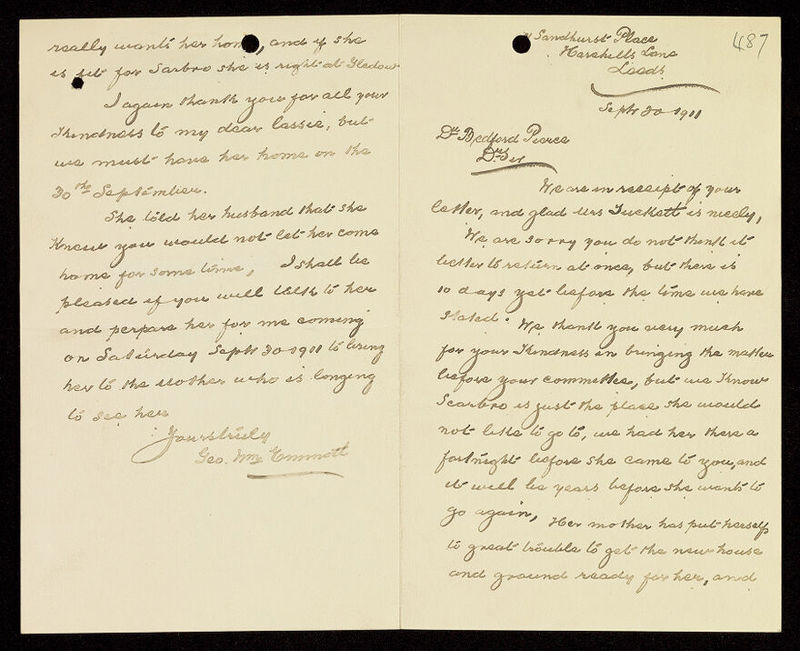 487
Sandhurst Place
Harehills Lane
Leeds
Septr 20 1911
Dr Bedford Pierce
Dr Sir
We are in receipt of your
letter, and glad Mrs Tuckett is nicely,
We are sorry you do not think it
better to return at once, but there is
10 days yet before the time we have
stated. We thank you very much
for your Kindness in bringing the matter
before your committee, but we Know
Scarbro is just the place she would
not like to go to, we had her there a
fortnight before she came to you, and
it will be years before she wants to
go again, Her mother has put herself
to great trouble to get the new house
and ground ready for her, and
really wants her home, and if she
is fit for Scarbro she is right at Gledow
I again thank you for all your
Kindness to my dear lassie, but
we must have her home on the
30th September.
She told her husband that she
Knew you would not let her come
home for some time, I shall be
pleased if you will talk to her
and perpare her for me coming
on Saturday Septr 30 1911 to bring
her to the Mother who is longing
to see her
Yours truly
Geo. Wm Emmott